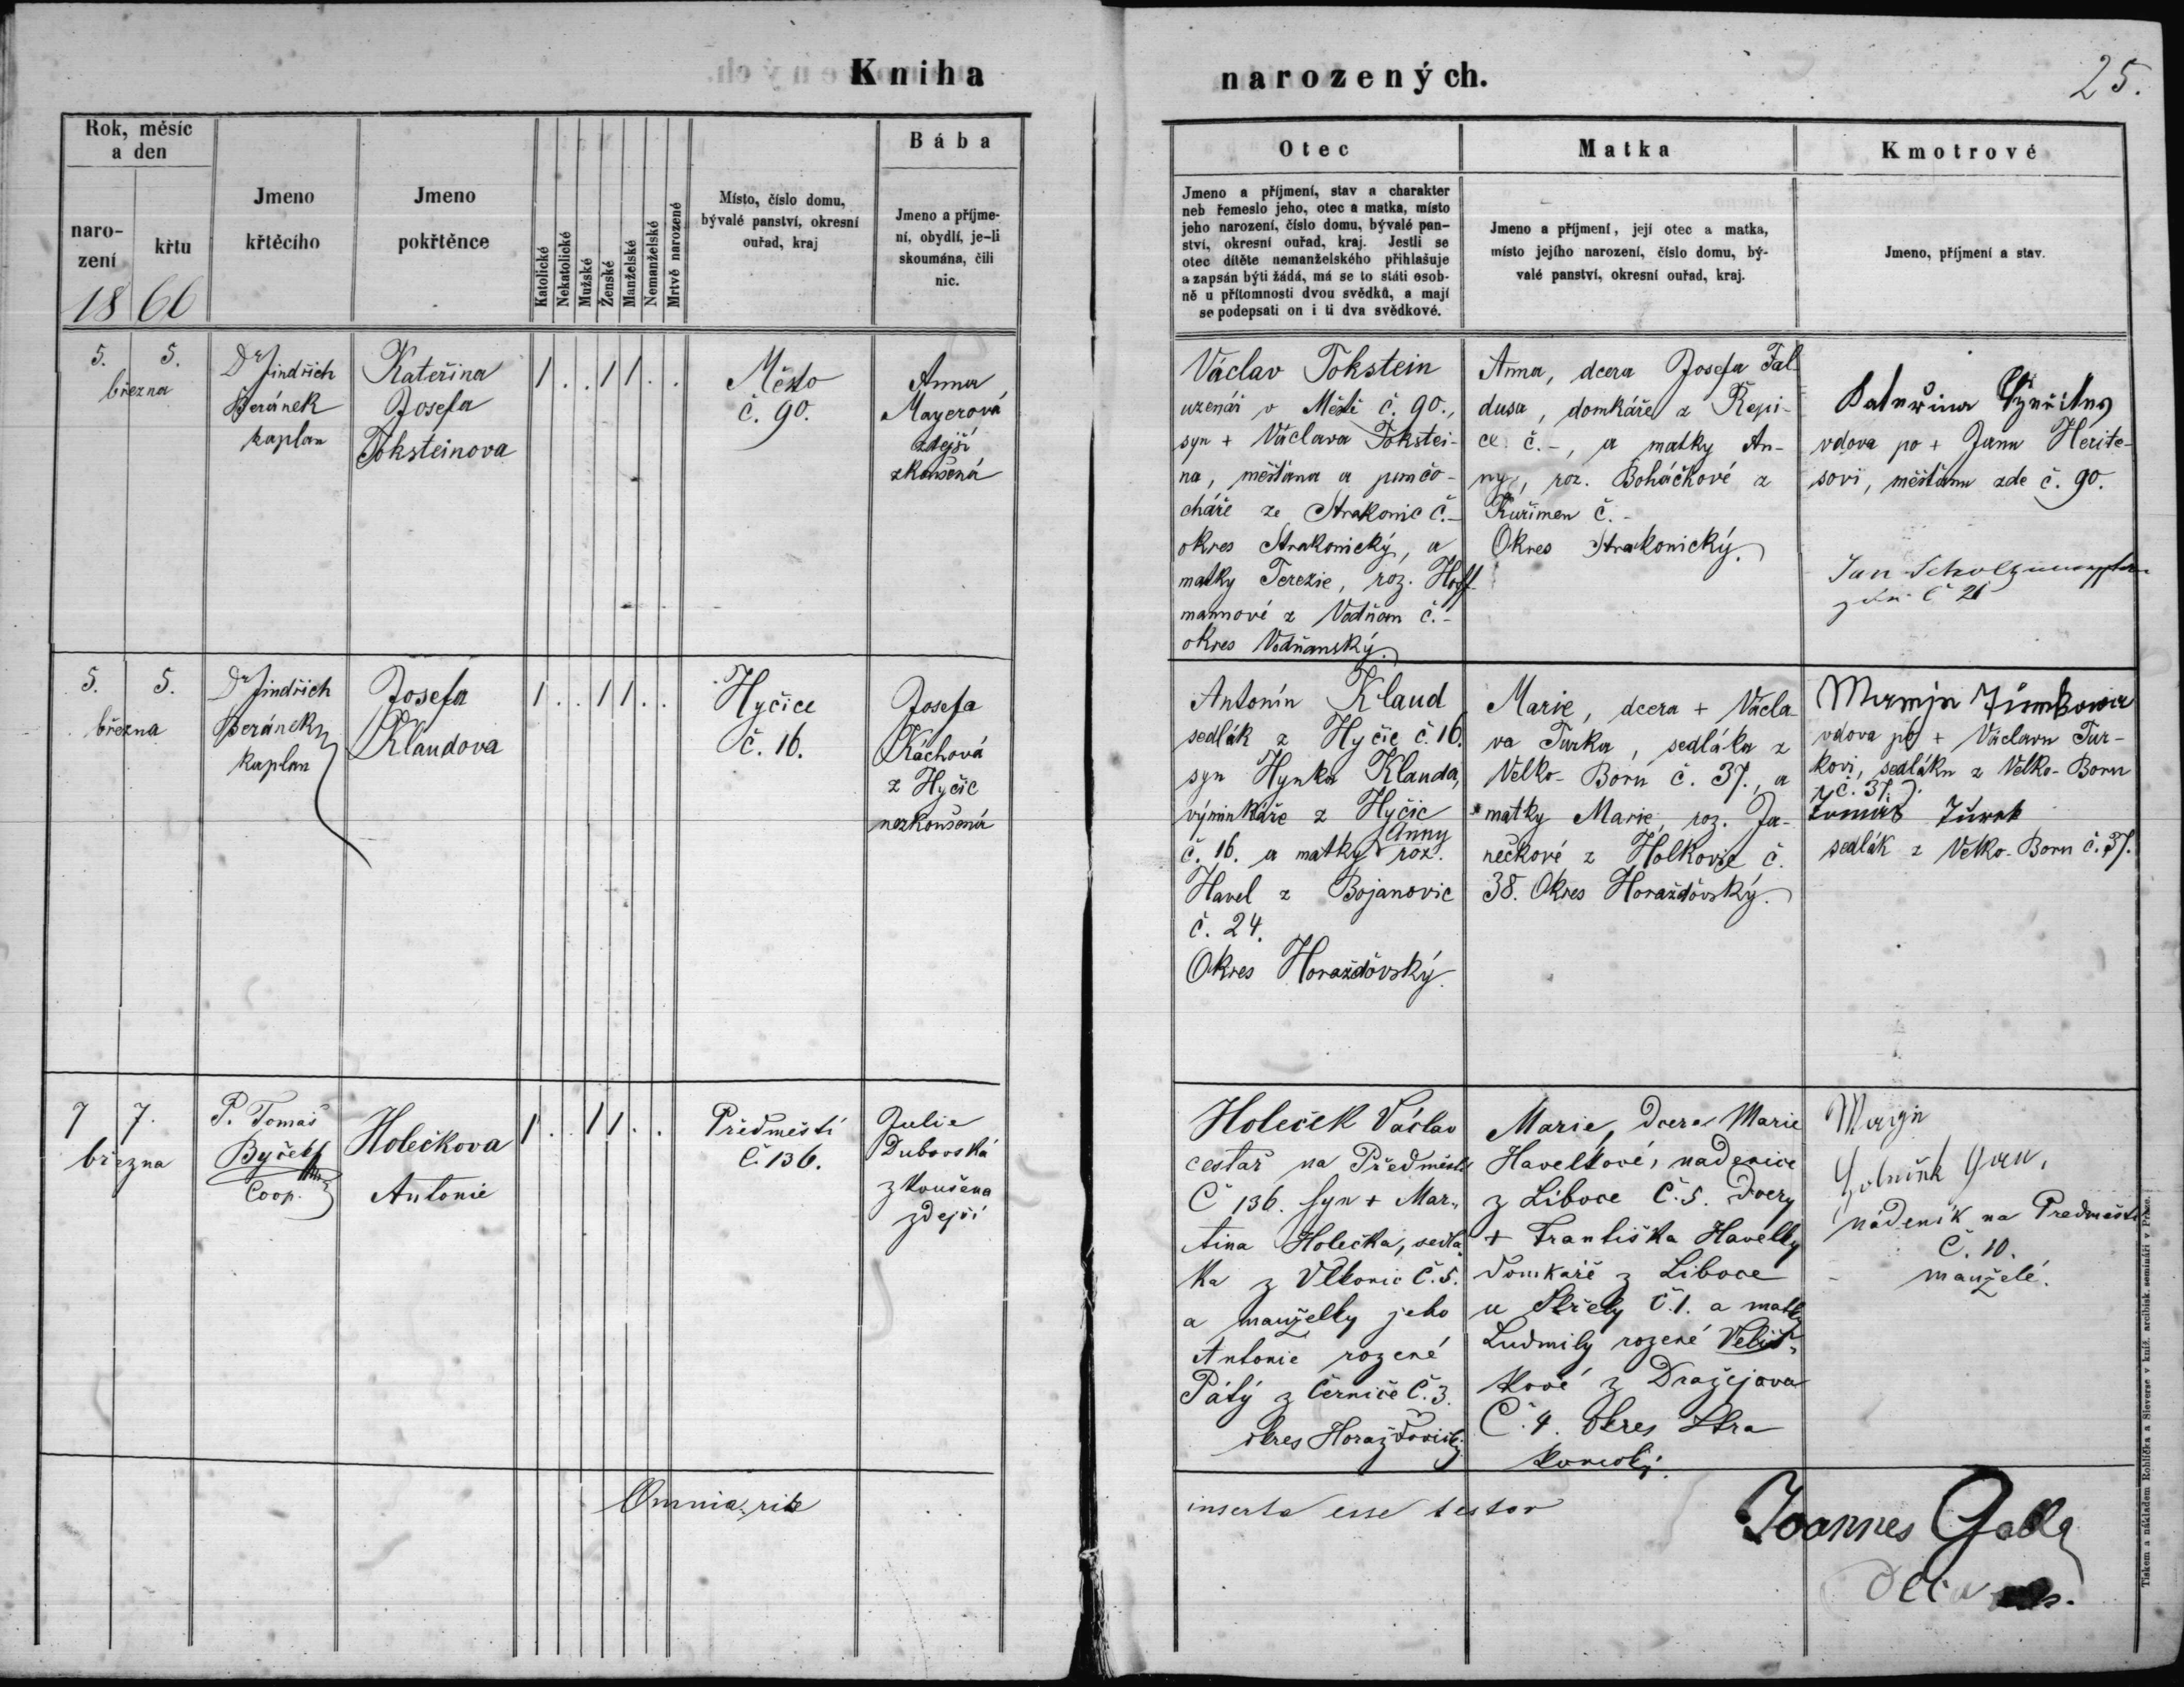 Kniha narozených.
25.
Rok, měsíc
a den
naro-
zení
křtu
1866
Jmeno
křtěcího
Jmeno
pokřtěnce
Katolické
Nekatolické
Mužské
Ženské
Manželské
Nemanželské
Mrtvě narozené
Místo, číslo domu,
bývalé panství, okresní
ouřad, kraj
Bába
Jmeno a příjme-
ní, obydlí, je-li
skoumána, čili
nic.
Otec
Jmeno a příjmení, stav a charakter
neb řemeslo jeho, otec a matka, místo
jeho narození, číslo domu, bývalé pan-
ství, okresní ouřad, kraj. Jestli se
otec dítěte nemanželského přihlašuje
a zapsán býti žádá, má se to státi osob-
ně u přítomnosti dvou svědků, a mají
se podepsati on i ti dva svědkové.
Matka
Jmeno a příjmení, její otec a matka,
místo jejího narození, číslo domu, bý-
valé panství, okresní ouřad, kraj.
Kmotrové
Jmeno, příjmení a stav.
5. 5.
března
Dr Jindřich
Beránek
kaplan
Kateřina
Josefa
Toksteinova
1 . . 1 1 . .
Město
č. 90.
Anna
Mayerová
zdejší
zkoušená
Václav Tokstein
uzenář v Městě č. 90.,
syn + Václava Tokstei-
na, měšťana a punčo-
cháře ze Strakonic č.-
okres Strakonický, a
matky Terezie, roz. Hoff-
mannové z Vodňan č.-
okres Vodňanský.
Anna, dcera Josefa Fal-
dusa, domkáře z Řepi-
ce č.-, a matky An-
ny, roz. Boháčkové z
Kuřimen č.-
Okres Strakonický.
Kateřina
vdova po + Janu Herite-
sovi, měšťanu zde č. 90.
Jan
č 21
5. 5.
března
Dr Jindřich
Beránek
kaplan
Josefa
Klaudova
1 . . 1 1 . .
Hyčice
č. 16.
Josefa
Káchová
z Hyčic
nezkoušená
Antonín Klaud
sedlák z Hyčic č. 16.
syn Hynka Klauda,
výminkáře z Hyčic
č. 16. a matky Anny roz.
Havel z Bojanovic
č. 24.
Okres Horažďovský.
Marie, dcera + Václa-
va Turka, sedláka z
Velko-Boru č. 37., a
matky Marie, roz. Ja-
nečkové z Holkovic č.
38. Okres Horažďovský.
Marija Turkowa
vdova po + Václavu Tur-
kovi, sedláku z Velko-Boru
č. 37.
Tomáš Turek
sedlák z Velko-Boru č. 37.
7 7.
března
P. Tomáš
Byček
Coop.
Holečkova
Antonie
1 . . 1 1 . .
Předměstí
č. 136.
Julie
Dubovská
zkoušena
zdejší
Holeček Václav
cestář na Předměstí
Č 136. syn + Mar-
tina Holečka, sedlá-
ka z Vlkonic č. 5.
a manželky jeho
Antonie rozené
Pátý z Černíče Č. 3.
okres Horažďovický
Marie, dcera Marie
Havelkové, nadenice
z Liboce č. 5. dcery
+ Františka Havelky
domkáře z Liboce
u Střely č. 1. a matky
Ludmily rozené Veliš-
kové z Dražejova
Č. 4. okres Stra
konický.
Marya
Jan,
nádeník na Předměstí
Č. 10.
manželé.
Omnia rite
inserta esse testor
Joannes Galla
Tiskem a nákladem Rohlíčka a Sieverse v kníž. arcibisk. semináři v Praze.